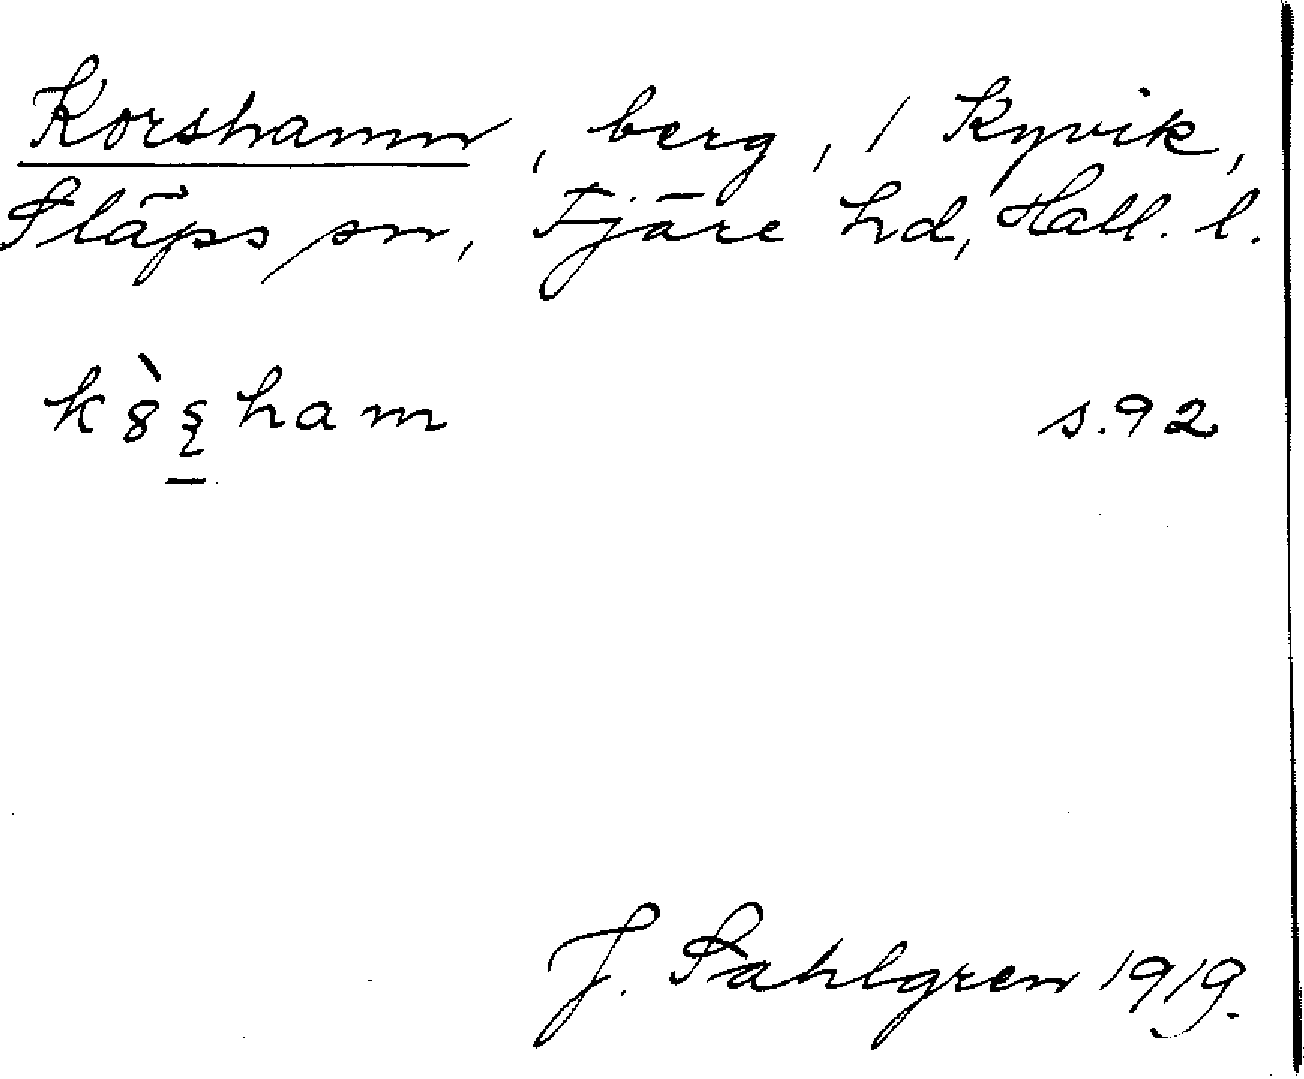 Korshamn, berg, i Kyvik,
Släps sn, Fjäre hd, Hall. l.
k8̀s̨ham s. 92
J. Sahlgren 1919.